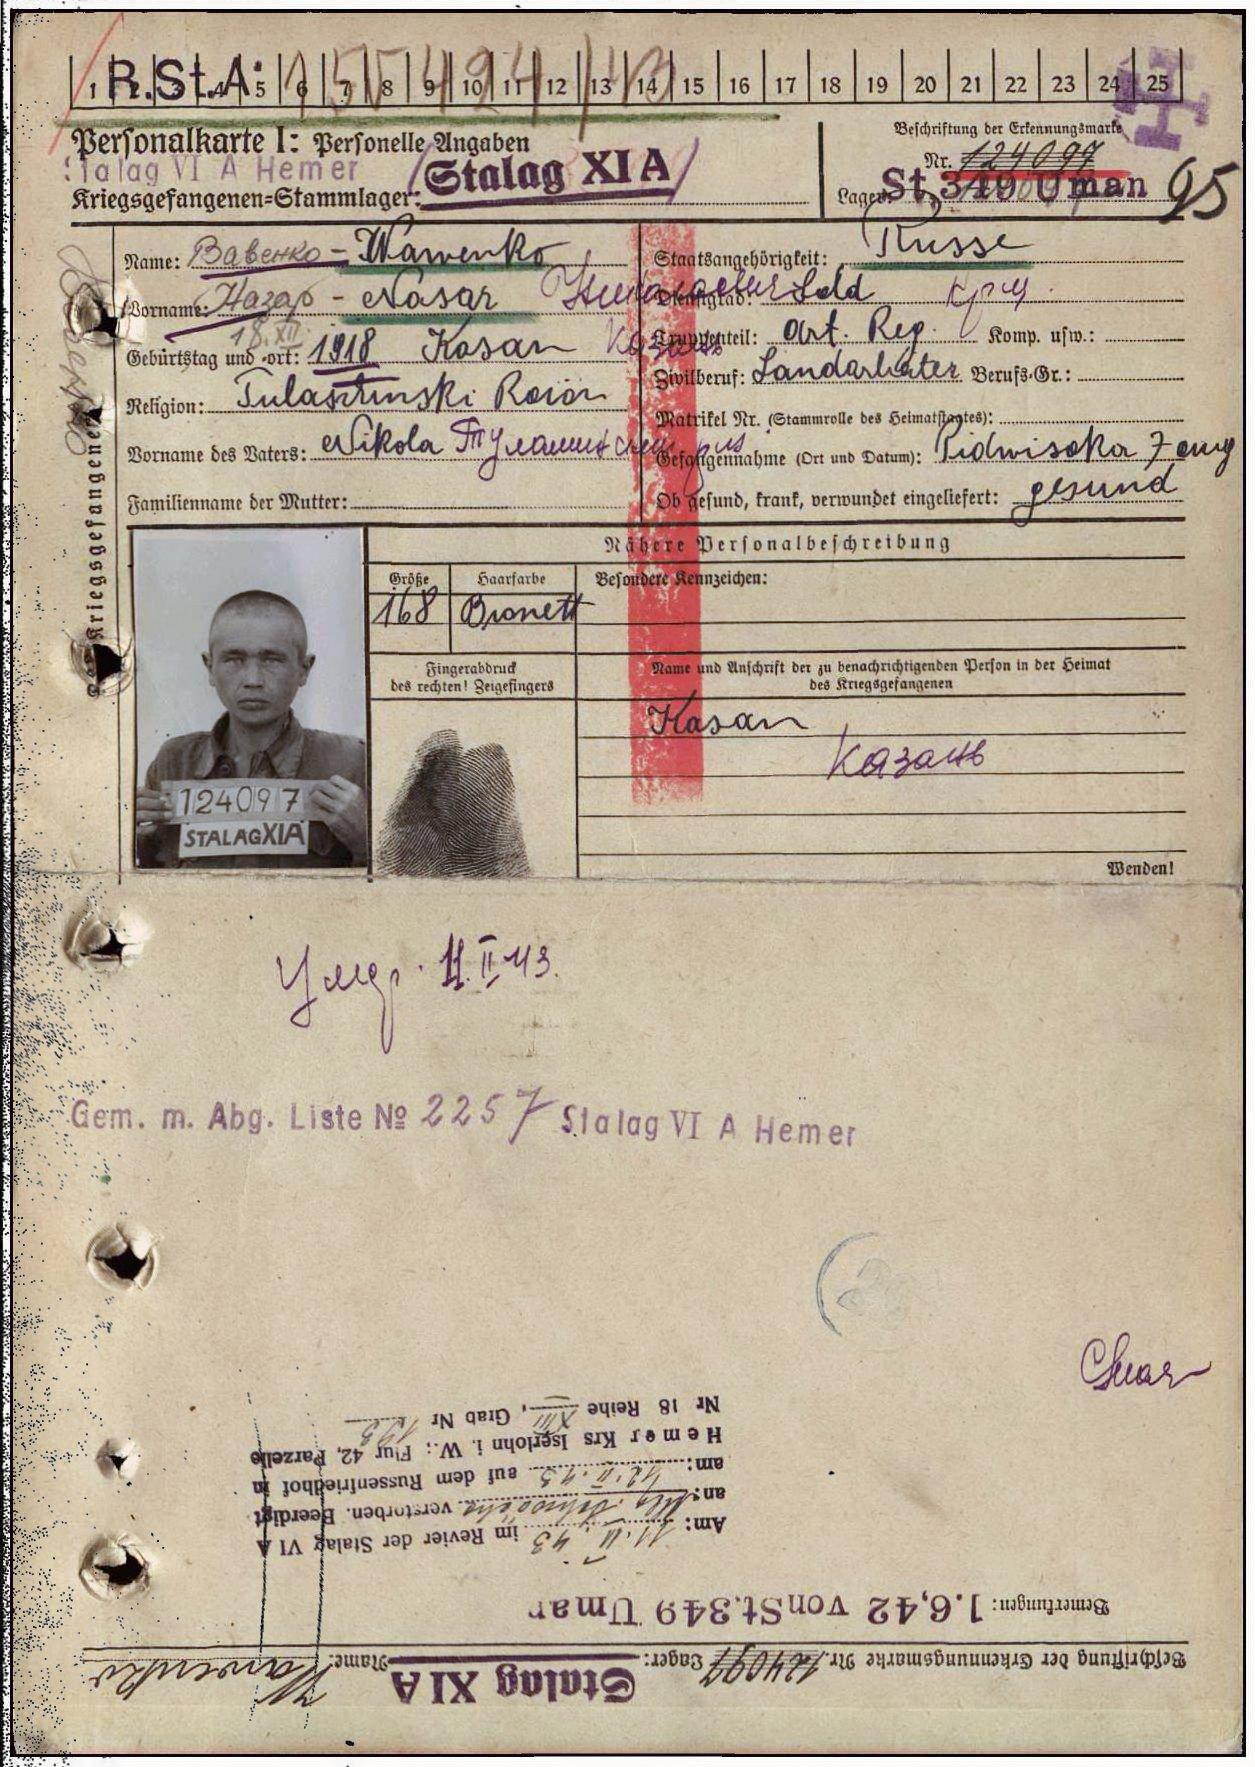 1 2 3 4 5 6 7 8 9 10 11 12 13 14 15 16 17 18 19 20 21 22 23 24 25
R.St.A:
Personalkarte I: Personelle Angaben
Stalag VI A Hemer
Kriegsgefangenen=Stammlager: Stalag XI A
Beschriftung der Erkennungsmarke
Nr. 124097
Lager: St. 349 Uman
95
Des Kriegsgefangenen
Name: Вавенко - Wawenko
Vorname: Назар - Nasar Николаевич
18.XII.
Geburtstag und -ort: 1918 Kasan Казань
Religion:
Vorname des Vaters: Nikola
Familienname der Mutter:
Staatsangehörigkeit: Russe
Dienstgrad: Sold
Truppenteil: Art. Reg. Komp. usw.:
Zivilberuf: Landarbeiter Berufs-Gr.:
Matrikel Nr. (Stammrolle des Heimatstaates):
Gefangennahme (Ort und Datum): Pidwisoka 7 aug
Ob gesund, krank, verwundet eingeliefert: gesund
Nähere Personalbeschreibung
Größe Haarfarbe Besondere Kennzeichen:
168 Bronett
Fingerabdruck
des rechten! Zeigefingers
Name und Anschrift der zu benachrichtigenden Person in der Heimat
des Kriegsgefangenen
Kasan
Казань
124097
STALAG XIA
Wenden!
Умер. 11.II.43.
Gem. m. Abg. Liste № 2257 Stalag VI A Hemer
Beschriftung der Erkennungsmarke Nr. 124097 Lager: Stalag XI A Name: Wawenko
Bemerkungen: 1.6,42 von St.349 Uman
Am: 11.II.43 im Revier der Stalag VI A
an: verstorben. Beerdigt
am: 12.II.43 auf dem Russenfriedhof in
Hemer Krs Iserlohn i. W.: Flur 42, Parzelle
Nr 18 Reihe XIII, Grab Nr